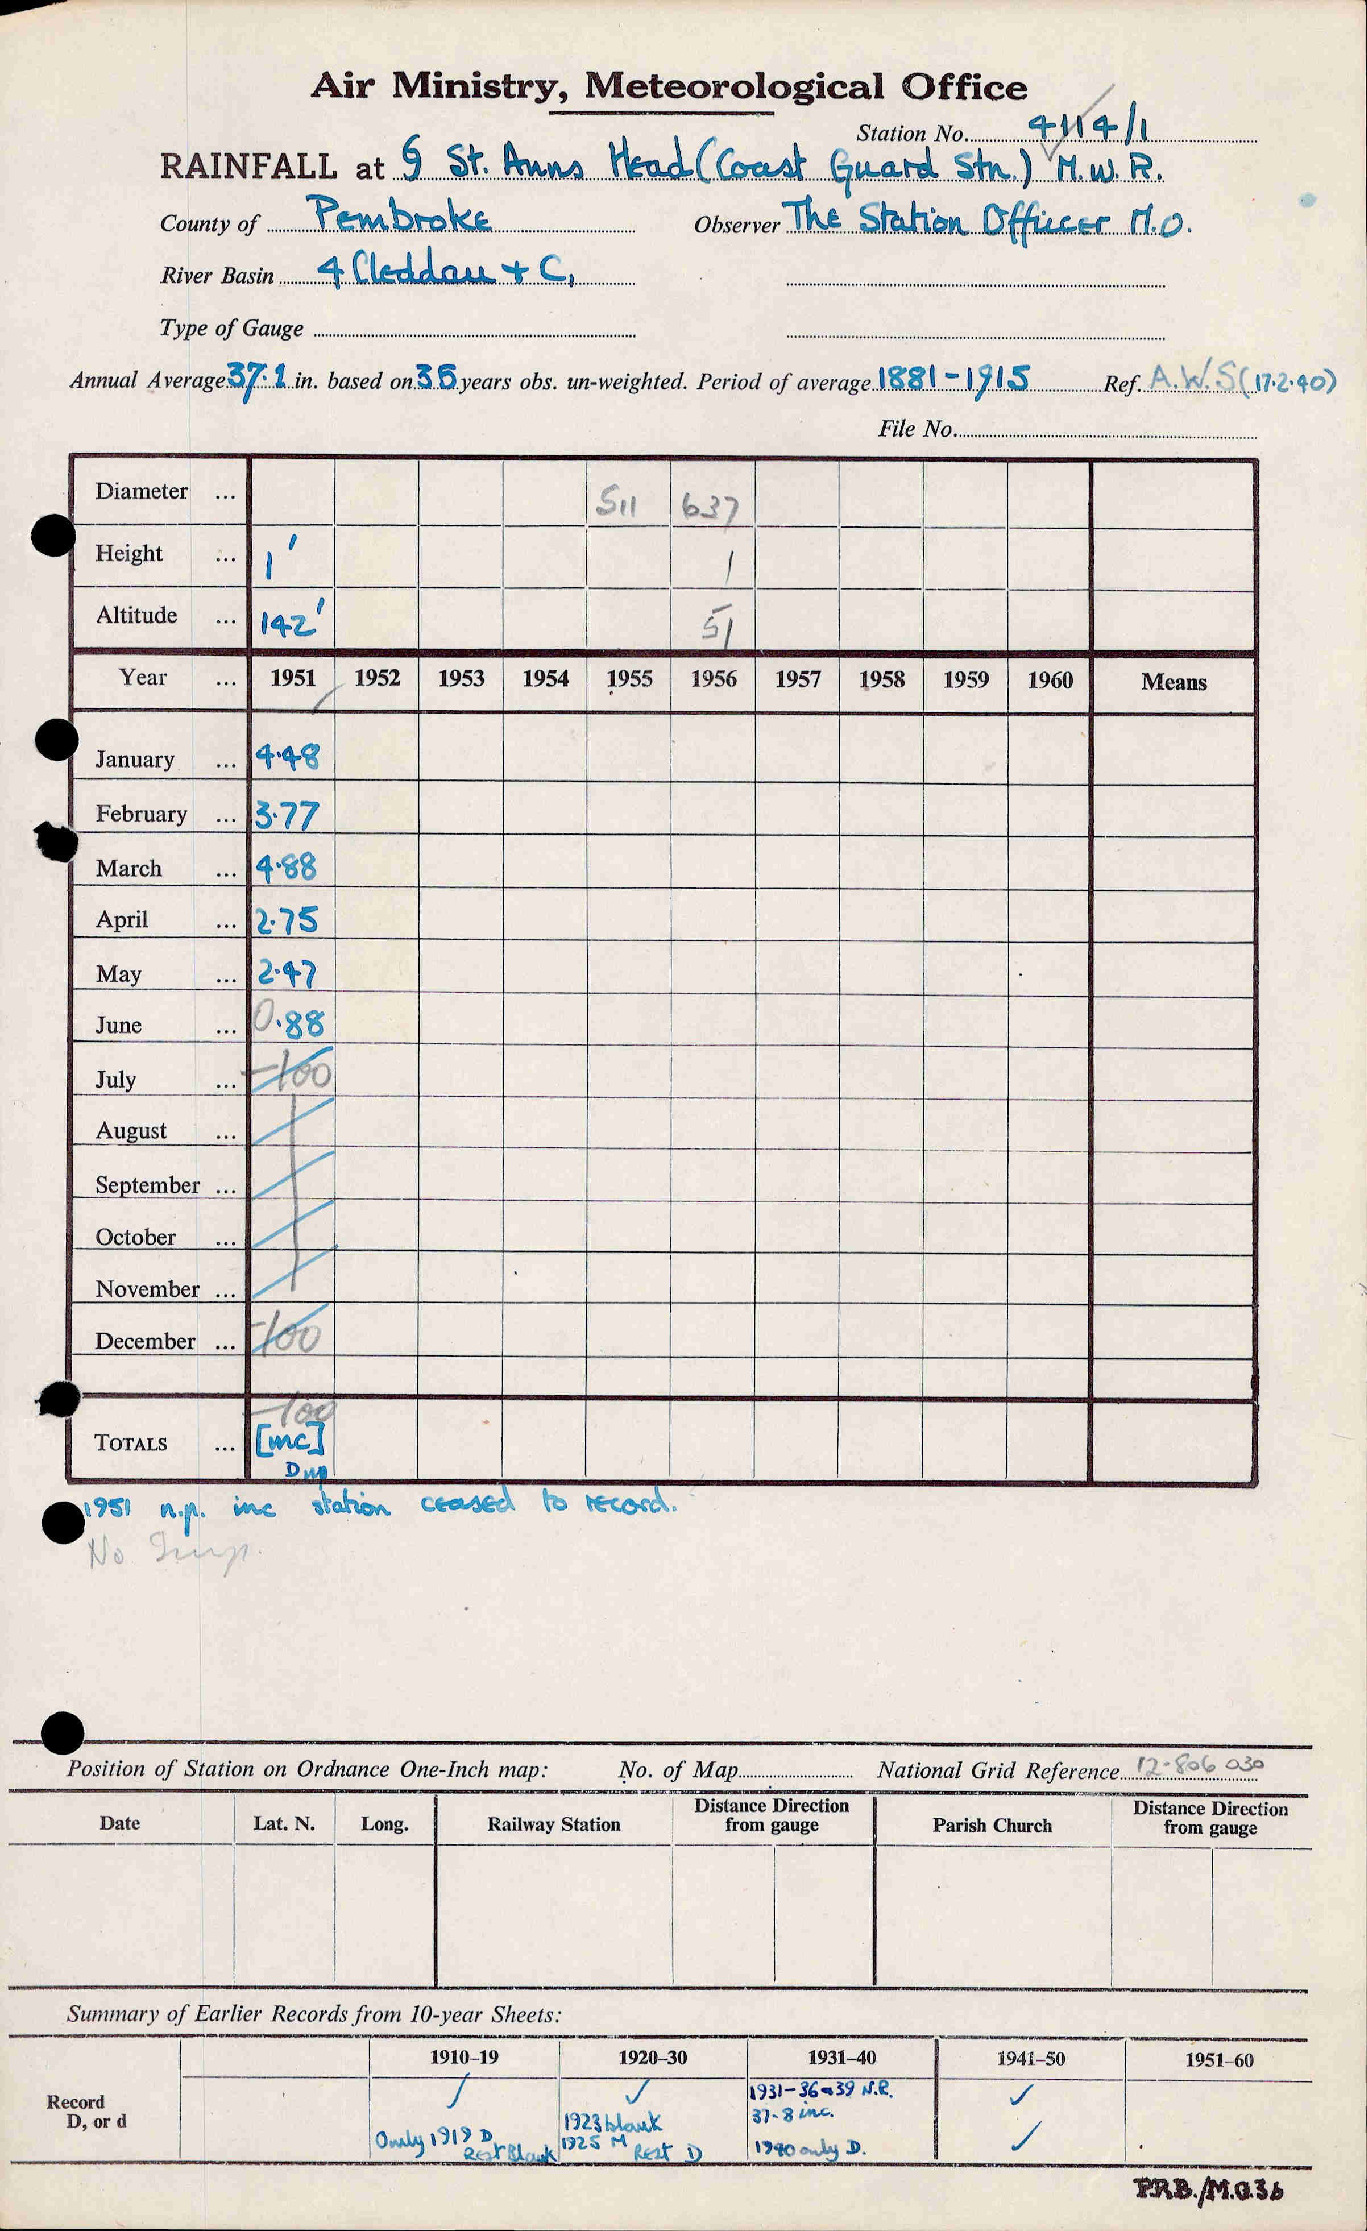 Air Ministry, Meteorological Office
Station No. 4114/1
RAINFALL at § St. Anns Head (Coast Guard Stn.) M.W.R.
County of Pembroke Observer The Station Officer M.O.
River Basin 4 Cleddau + C,
Type of Gauge
Annual Average 37.1 in. based on 35 years obs. un-weighted. Period of average 1881-1915 Ref. A.W.S (17.2.40)
File No.
Diameter ... 511 637
Height ... 1' 1
Altitude ... 142' 51
Year ... 1951 1952 1953 1954 1955 1956 1957 1958 1959 1960 Means
January ... 4.48
February ... 3.77
March ... 4.88
April ... 2.75
May ... 2.47
June ... 0.88
July ... -100
August ...
September ...
October ...
November ...
December ... -100
-100
TOTALS ... [inc]
D
1951 n.p. inc station ceased to record.
No
Position of Station on Ordnance One-Inch map: No. of Map National Grid Reference 12-806 030
Date Lat. N. Long. Railway Station Distance Direction from gauge Parish Church Distance Direction from gauge
Summary of Earlier Records from 10-year Sheets:
1910–19 1920–30 1931–40 1941–50 1951–60
Record D, or d
✓ ✓ 1931-36 39 N.R. ✓
37-8 inc.
Only 1919 D Rest Blank 1923 blank 1925 M Rest D 1940 only D. ✓
P.R.B./M.O.36